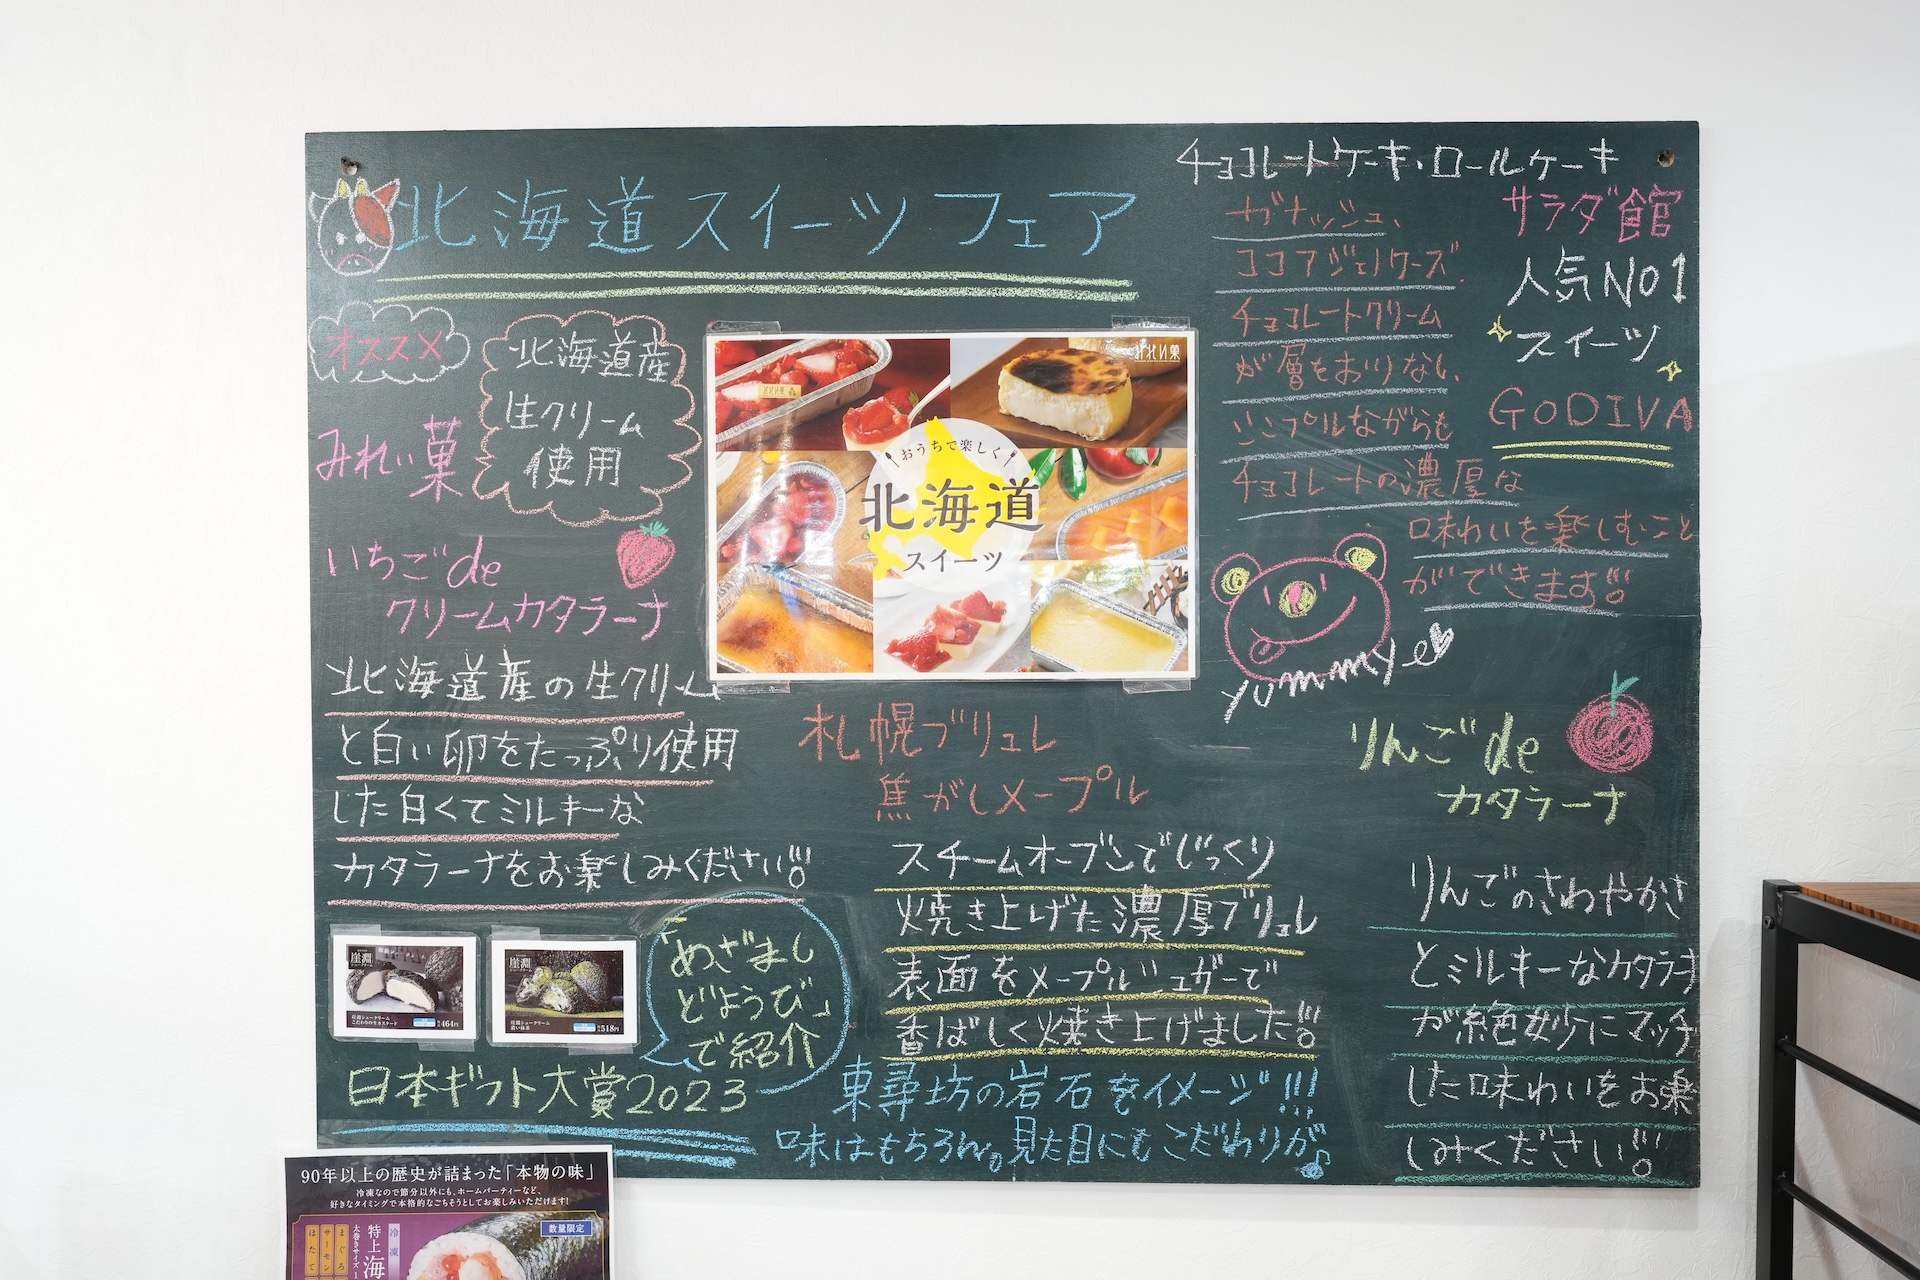 北海道スイーツフェア
オススメ
北海道産
生クリーム
使用
みれい菓
いちごde
クリームカタラーナ
北海道産の生クリーム
と白い卵をたっぷり使用
した白くてミルキーな
カタラーナをお楽しみください!!!
おうちで楽しく
北海道
スイーツ
チョコレートケーキ・ロールケーキ
サラダ館
人気NO1
スイーツ
GODIVA
ガナッシュ、
ココアジェノワーズ、
チョコレートクリーム
が層をおりなし、
シンプルながらも
チョコレートの濃厚な
味わいを楽しむこと
ができます!!!
yummy
札幌ブリュレ
焦がしメープル
スチームオーブンでじっくり
焼き上げた濃厚ブリュレ
表面をメープルシュガーで
香ばしく焼き上げました!!!
りんごde
カタラーナ
りんごのさわやかさ
とミルキーなカタラーナ
が絶妙にマッチ
した味わいをお楽
しみください!!!
崖淵
シュークリーム
崖淵シュークリーム
こだわりの生カスタード
464円
崖淵
シュークリーム
崖淵シュークリーム
濃い抹茶
518円
「めざまし
どようび」
で紹介
日本ギフト大賞2023
東尋坊の岩石をイメージ!!!
味はもちろん。見た目にもこだわりが♪
90年以上の歴史が詰まった「本物の味」
冷凍なので節分以外にも、ホームパーティーなど、
好きなタイミングで本格的なごちそうとしてお楽しみいただけます!
数量限定
冷凍
特上海
太巻きサイズ
まぐろ
サーモン
ほたて